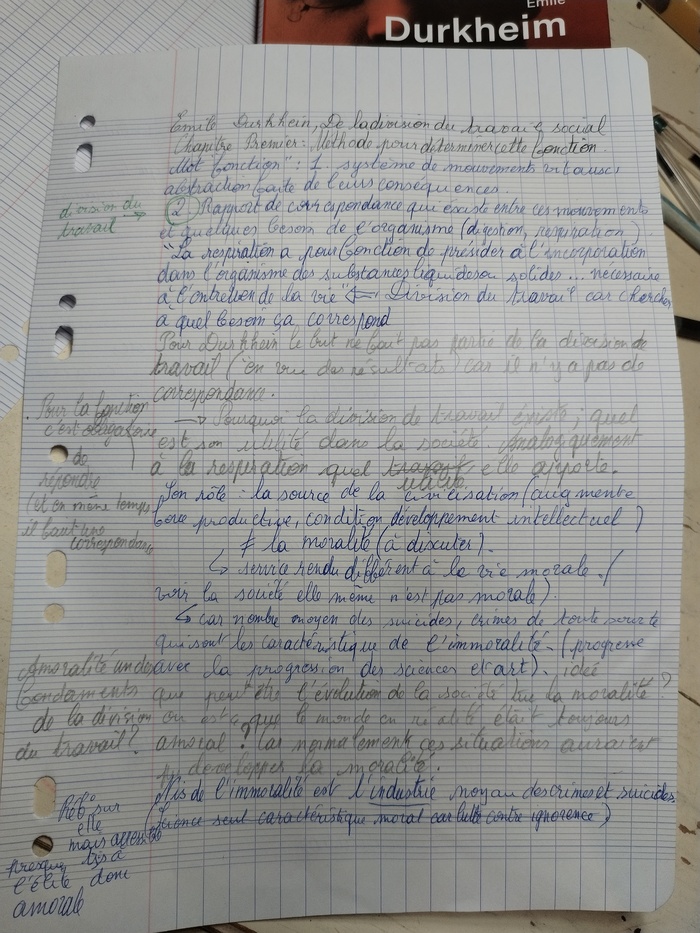 Emile
Durkheim
Emile Durkhein, De la division du travail social
Chapitre Premier : Méthode pour déterminer cette fonction.
Mot fonction" : 1. système de mouvements vitaux,
abstraction faite de leurs conséquences.
division du
travail →
② Rapport de correspondance qui existe entre ces mouvements
et quelques besoins de l'organisme (digestion, respiration)
"La respiration a pour fonction de présider à l'incorporation
dans l'organisme des substances liquides ou solides ... necessaire
à l'entretien de la vie" ⇐ Division du travail car chercher
à quel besoin ça correspond
Pour Durkheim le but ne fait pas partie de la division de
travail (en vue des résultats) car il n'y a pas de
correspondance.
Pour la fonction
c'est obligatoire
de
répondre
(et en même temps
il faut une
correspondance
→ Pourquoi la division de travail éxiste ; quel
est son utilité dans la société. Analogiquement
à la respiration quel travail elle apporte.
utilité
Son rôle : la source de la civilisation (augmente
force productive, condition développement intellectuel)
≠ la moralité (à discuter).
↳ service rendu différent à la vie morale. (
voir la société elle même n'est pas morale).
↳ car nombre moyen des suicides, crimes de toute sorte
qui sont les caractéristique de l'immoralité. (progresse
avec la progression des sciences et art). idée
que peut être l'évolution de la société tue la moralité ?
ou est ce que le monde en réalité était toujours
amoral ? Car normalement ces situations auraient
pu développer la moralité.
Amoralité un des
fondaments
de la division
du travail ?
Pis de l'immoralité est l'industrie moyen des crimes et suicides.
(Science seul caractéristique moral car lutte contre ignorence)
Réf° sur
elle
mais
presque
l'élite donc
amorale